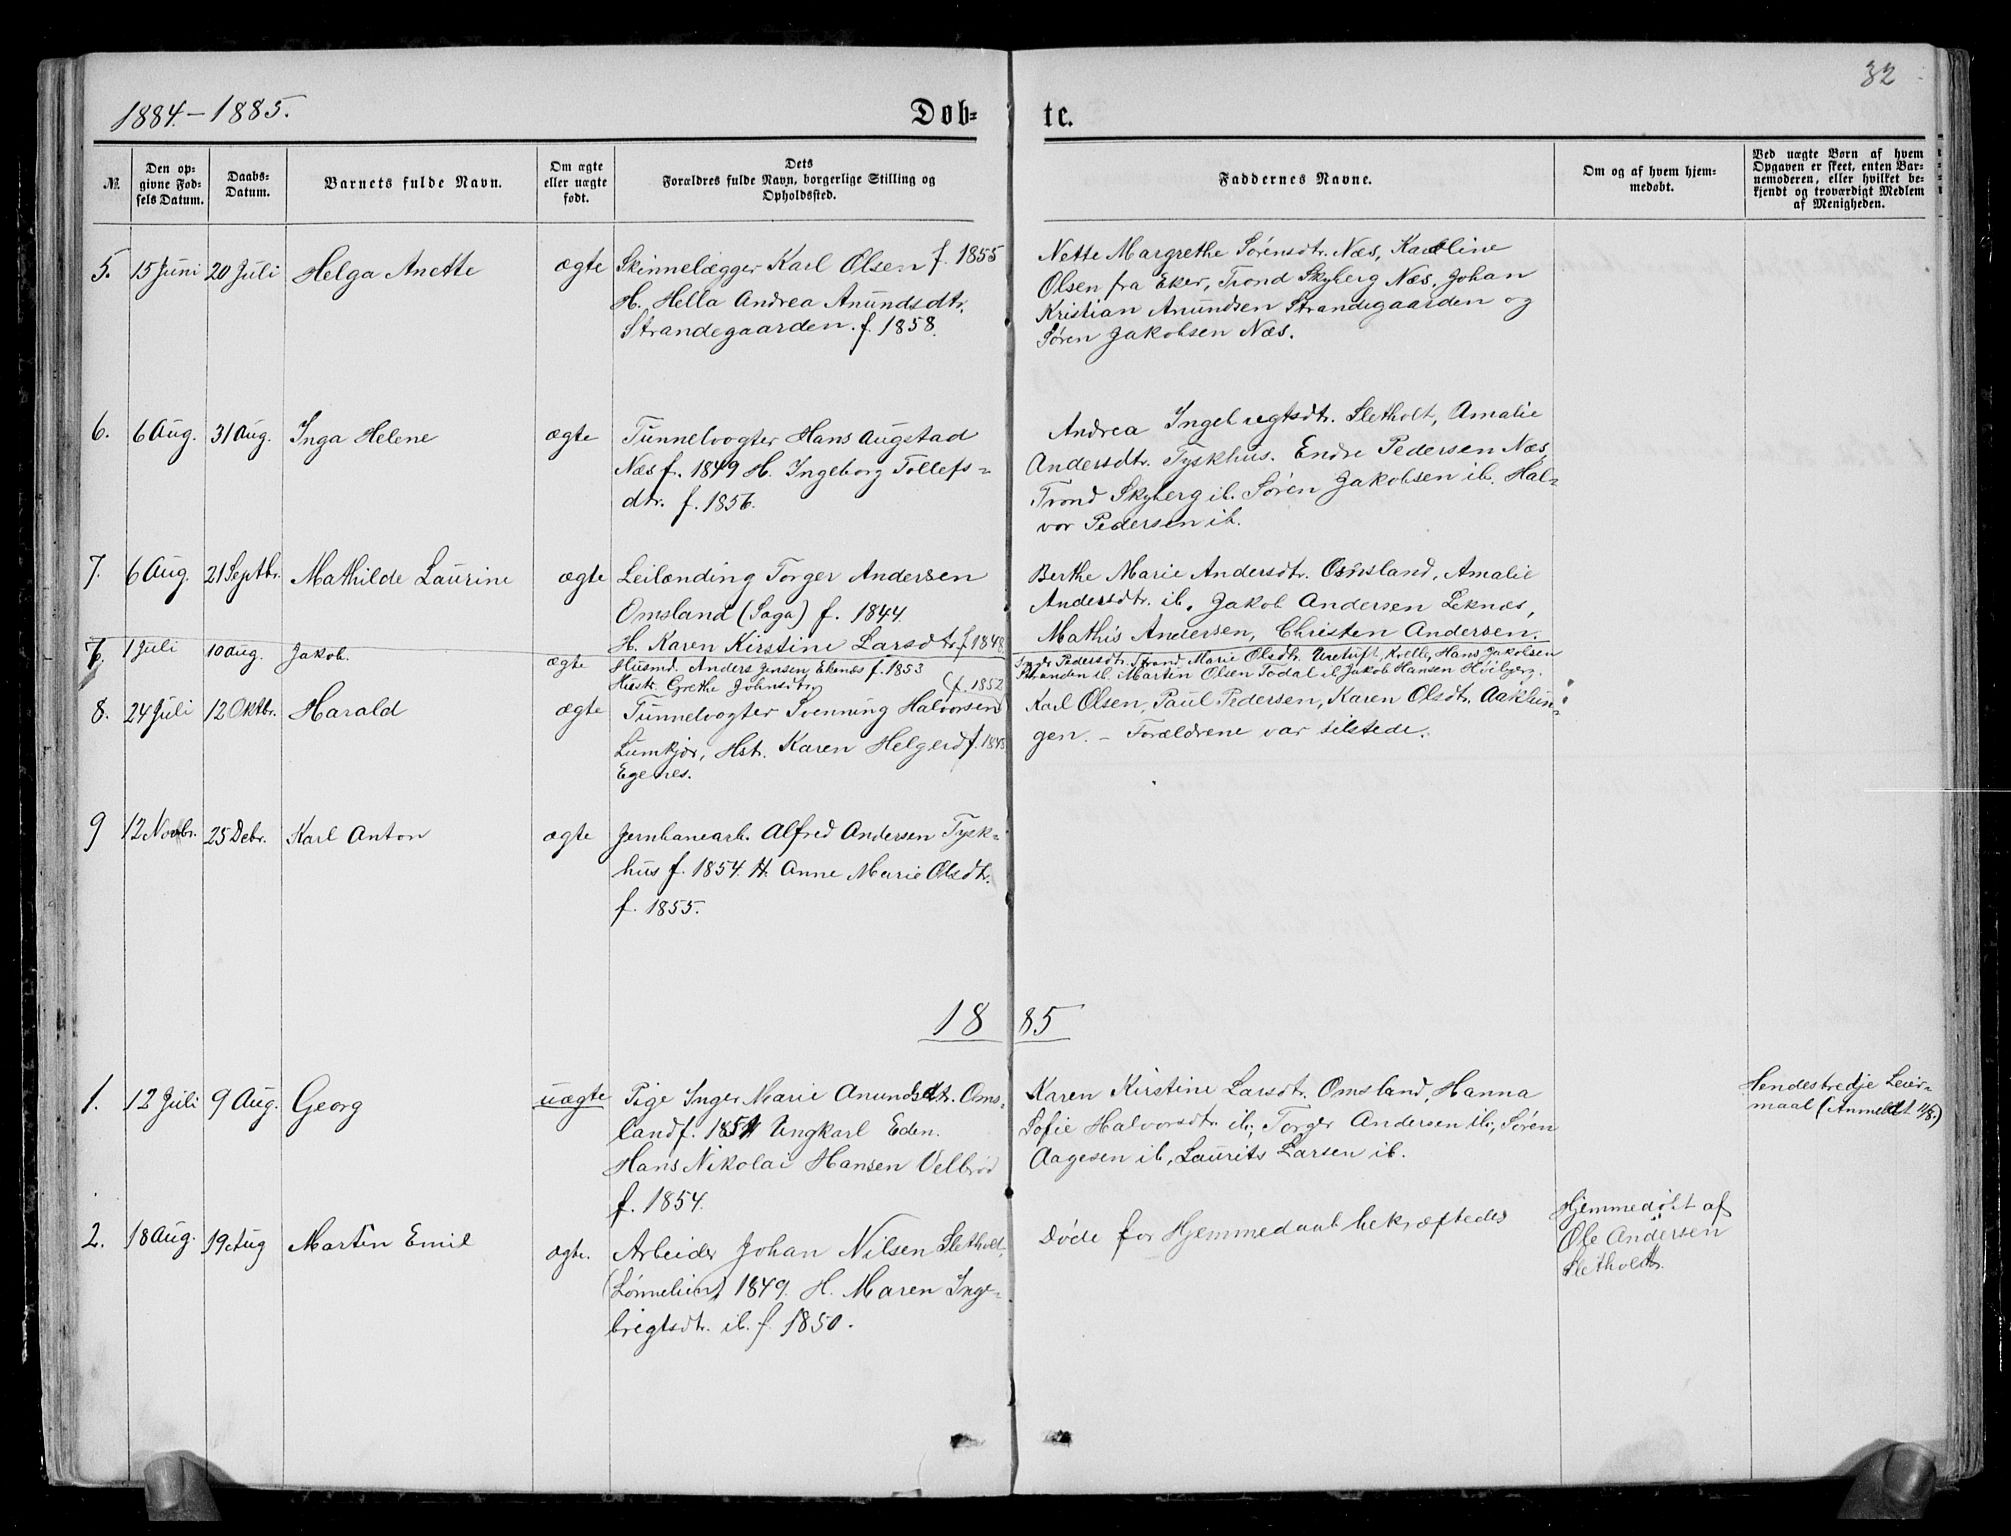 32
1884.-1885.
Døb-
te.
№.
Den op-
givne Fød-
sels Datum.
Daabs-
Datum.
Barnets fulde Navn.
Om ægte
eller uægte
født.
Dets
Forældres fulde Navn, borgerlige Stilling og
Opholdssted.
Faddernes Navne.
Om og af hvem hjem-
medøbt.
Ved uægte Børn af hvem
Opgaven er skeet, enten Bar-
nemoderen, eller hvilket be-
kjendt og troværdigt Medlem
af Menigheden.
5. 15 Juni 20 Juli Helga Anette ægte Skinnelægger Karl Olsen f. 1855
H. Hella Andrea Anundsdtr.
Strandegaarden. f. 1858.
Nette Margrethe Sørensdtr. Næs, Karoline
Olsen fra Eker, Trond Skyberg Næs, Johan
Kristian Anundsen Strandegaarden og
Søren Jakobsen Næs.
6. 6 Aug. 31 Aug. Inga Helene ægte Tunnelvogter Hans Augstad
Næs f. 1849 H. Ingeborg Tollefs-
dtr. f. 1856.
Andrea Ingebrigtsdtr. Sletholt, Amalie
Andersdtr. Tyskhus. Endre Pedersen Næs,
Trond Skyberg ib. Søren Jakobsen ib. Hal-
vor Pedersen ib.
7. 6 Aug. 21 Septbr. Mathilde Laurine ægte Leilænding Torger Andersen
Omsland (Saga) f. 1844.
H. Karen Kirstine Larsdtr. f 1848
Berthe Marie Andersdtr. Omsland, Amalie
Andersdtr. ib. Jakob Andersen Leknæs,
Mathis Andersen, Christen Andersen.
7. 1 Juli 10 Aug. Jakob. ægte Husmd. Anders Jensen Ekenæs f. 1853
Hustr. Grethe Johnsdtr. (f. 1852
Pedersdtr. Strand, Marie Olsdtr. Uretuft, Hans Jakobsen
Stranden ib. Martin Olsen Todal ib. Jakob Hansen Høibjerg.
8. 24 Juli 12 Oktbr. Harald ægte Tunnelvogter Svenning Halvorsen
Lumkjær, Hstr. Karen Helgesd f. 1848
Egenes.
Karl Olsen, Paul Pedersen, Karen Olsdtr. Aaklun-
gen. - Forældrene var tilstede.
9 12 Novbr. 25 Debr. Karl Anton ægte Jernbanearb. Alfred Andersen Tysk-
hus f. 1854. H. Anne Marie Olsdtr.
f. 1855.
1885
1. 12 Juli 9 Aug. Georg uægte Pige Inger Marie Anundsdtr. Oms-
land f. 1851 Ungkarl Eden.
Hans Nikolai Hansen Velbrød
f. 1854.
Karen Kirstine Larsdtr. Omsland, Hanna
Sofie Halvorsdtr. ib., Torger Andersen ib., Søren
Aagesen ib, Laurits Larsen ib.
Hendes tredje Leier-
maal (Anmeldt 11/8.)
2. 18 Aug. 19 Aug Martin Emil ægte. Arbeider Johan Nilsen Sletholt,
(Lønnelien) 1849. H. Maren Inge-
brigtsdtr. ib. f. 1850.
Døde før Hjemmedaab bekræftedes
Hjemmedøbt af
Ole Andersen
Sletholdt.